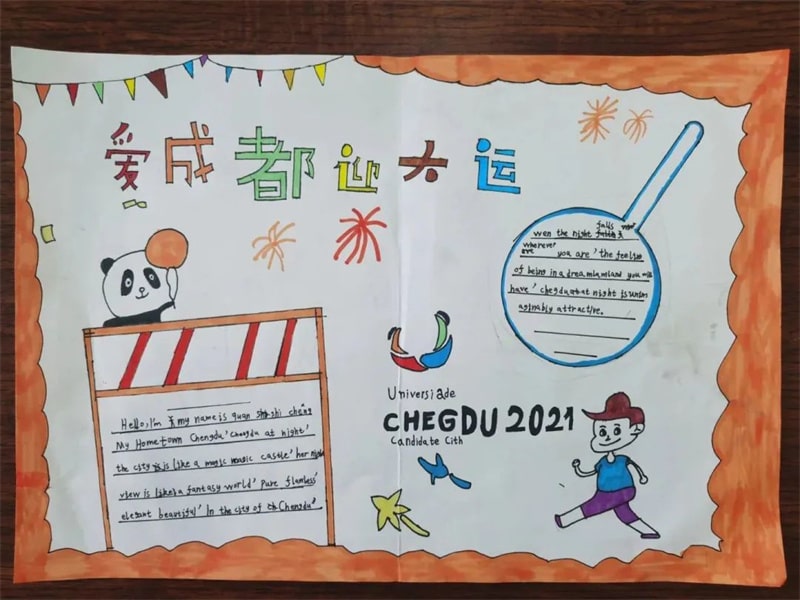 爱成都迎大运
wen the night falls
wherever you are ' the feeling
of being in a dreamlamland you will
have ' chegdu at night is unim
aginably attractive.
Universiade
CHEGDU 2021
Candidate Cith
Hello, I'm my name is quan shi cheng
My Hometown Chengdu ' Chengdu at night '
the city is like a magic castle ' her night
view is like a fantasy world ' Pure flawless '
elegant beautiful ' In the city of Chengdu '